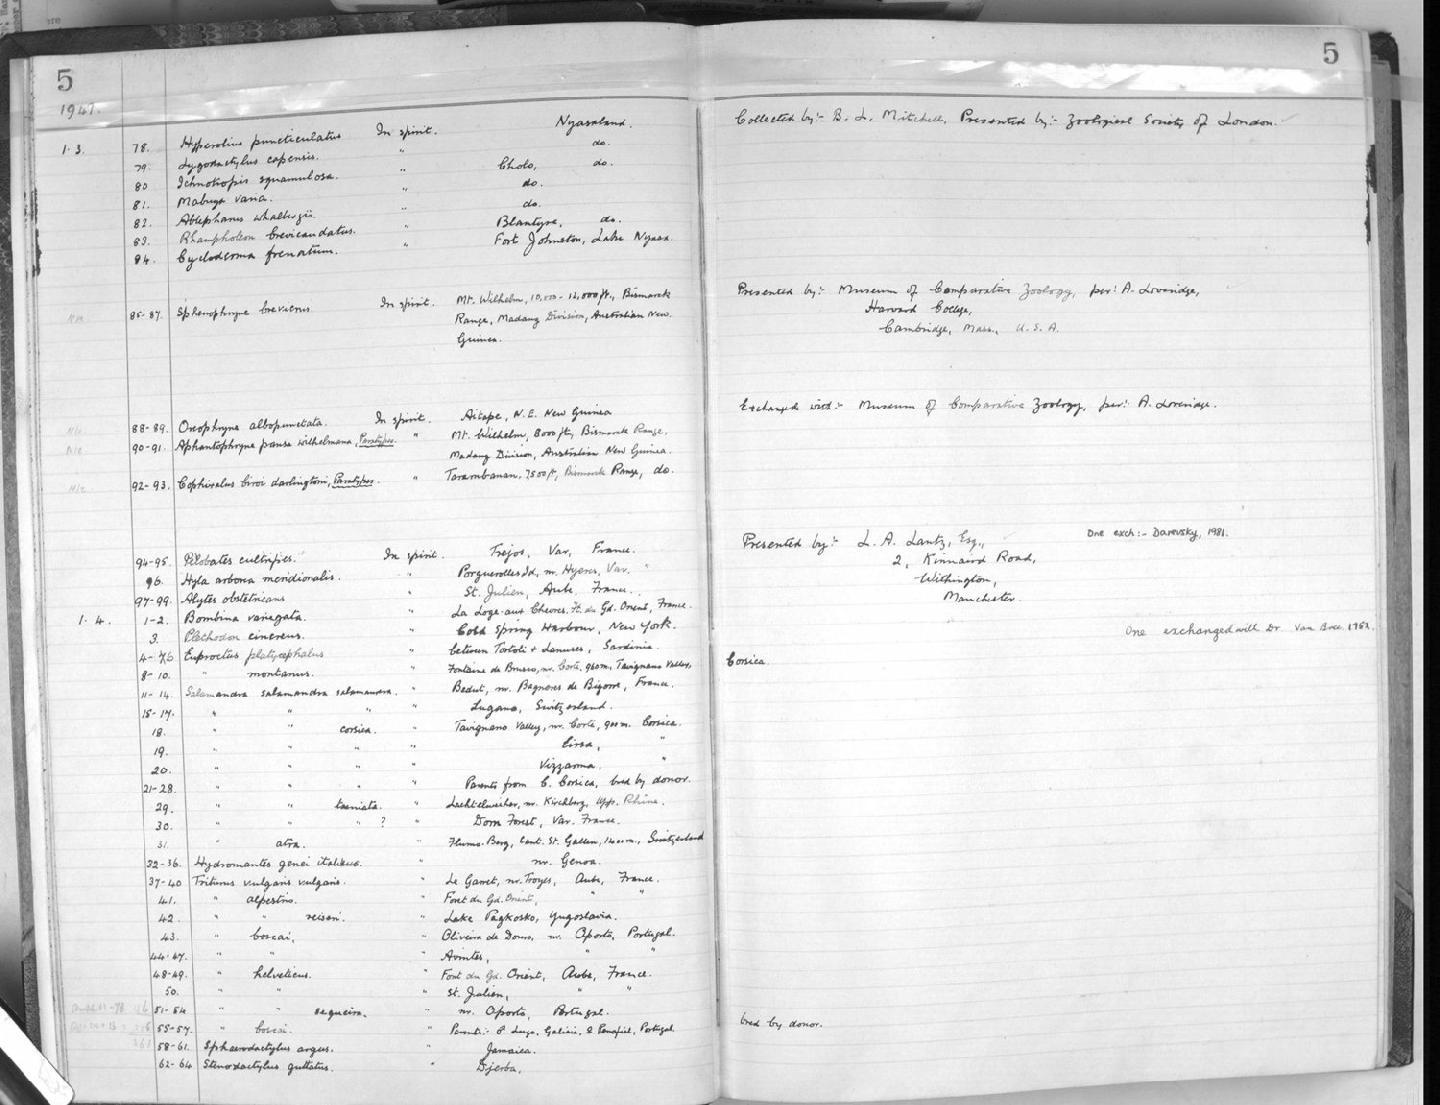 5
5
1947.
Nyasaland.
Collected by:- B. L. Mitchell, Presented by:- Zoological Society of London.
1.3. 78. Hyperolius puncticulatus In spirit. do.
79. Lygodactylus capensis. " Cholo, do.
80 Ichnotropis squamulosa. " do.
81. Mabuya varia. " do.
82. Ablepharus wahlbergii. " Blantyre, do.
83. Rhampholeon brevicaudatus. " Fort Johnston, Lake Nyasa.
84. Cycloderma frenatum.
85-87. Sphenophryne brevicrus In spirit. Mt. Wilhelm, 10,000-12,000 ft., Bismarck
Range, Madang Division, Australian New
Guinea.
Presented by:- Museum of Comparative Zoology, per: A. Loveridge,
Harvard College,
Cambridge, Mass., U.S.A.
88-89. Oreophryne albopunctata. In spirit. Aitape, N.E. New Guinea
Exchanged with:- Museum of Comparative Zoology, per: A. Loveridge.
90-91. Aphantophryne pansa wilhelmana, Paratypes. " Mt. Wilhelm, 8000 ft, Bismarck Range,
Madang Division, Australian New Guinea.
92-93. Cophixalus biroi darlingtoni, Paratypes. " Torombanan, 7500 ft, Bismarck Range, do.
94-95. Pelobates cultripes. In spirit. Frejos, Var, France.
Presented by:- L. A. Lantz, Esq., One exch:- Darevsky, 1981.
2, Kinnaird Road,
Withington,
Manchester.
96. Hyla arborea meridionalis. " Porquerolles Id, nr. Hyeres, Var. "
97-99. Alytes obstetricans " St. Julien, Aube, France.
1.4. 1-2. Bombina variegata. " La Loge-aux Chevres, Ft. du Gd. Orient, France.
3. Plethodon cinereus. " Cold Spring Harbour, New York.
One exchanged with Dr Van Bree. 1962.
4-7 Euproctus platycephalus " between Tortoli & Lanusei, Sardinia.
8-10. " montanus. " Fontaine de Brusco, nr. Corte, 960m, Tavignano Valley, Corsica.
11-14. Salamandra salamandra salamandra. " Bedat, nr. Bagneres de Bigorre, France.
15-17. " " " " Lugano, Switzerland.
18. " " corsica. " Tavignano Valley, nr. Corte, 900m. Corsica.
19. " " " " Evisa, "
20. " " " " Vizzavona. "
21-28. " " " " Parents from C. Corsica, bred by donor.
29. " " taeniata. " Lachtelweiher, nr. Kirchberg, Upp. Rhine.
30. " " " ? " Dom Forest, Var. France.
31. " atra. " Flums-Berg, Cant. St. Gallen, 1400m., Switzerland
32-36. Hydromantes genei italicus. " nr. Genoa.
37-40 Triturus vulgaris vulgaris. " Le Garret, nr. Troyes, Aube, France.
41. " alpestris. " Foret du Gd. Orient, " "
42. " " reiseri. " Lake Prokosko, Yugoslavia.
43. " boscai, " Oliveira de Douro, nr. Oporto, Portugal.
44-47. " " " Avintes, " "
48-49. " helveticus. " Foret du Gd. Orient, Aube, France.
50. " " " St. Julien, " "
51-54 " " sequeirai. " nr. Oporto, Portugal.
55-57. " boscai. " Parents:- ♂ Lugo, Galicia, ♀ Penafiel, Portugal bred by donor.
58-61. Sphaerodactylus argus. " Jamaica.
62-64 Stenodactylus guttatus. " Djerba,